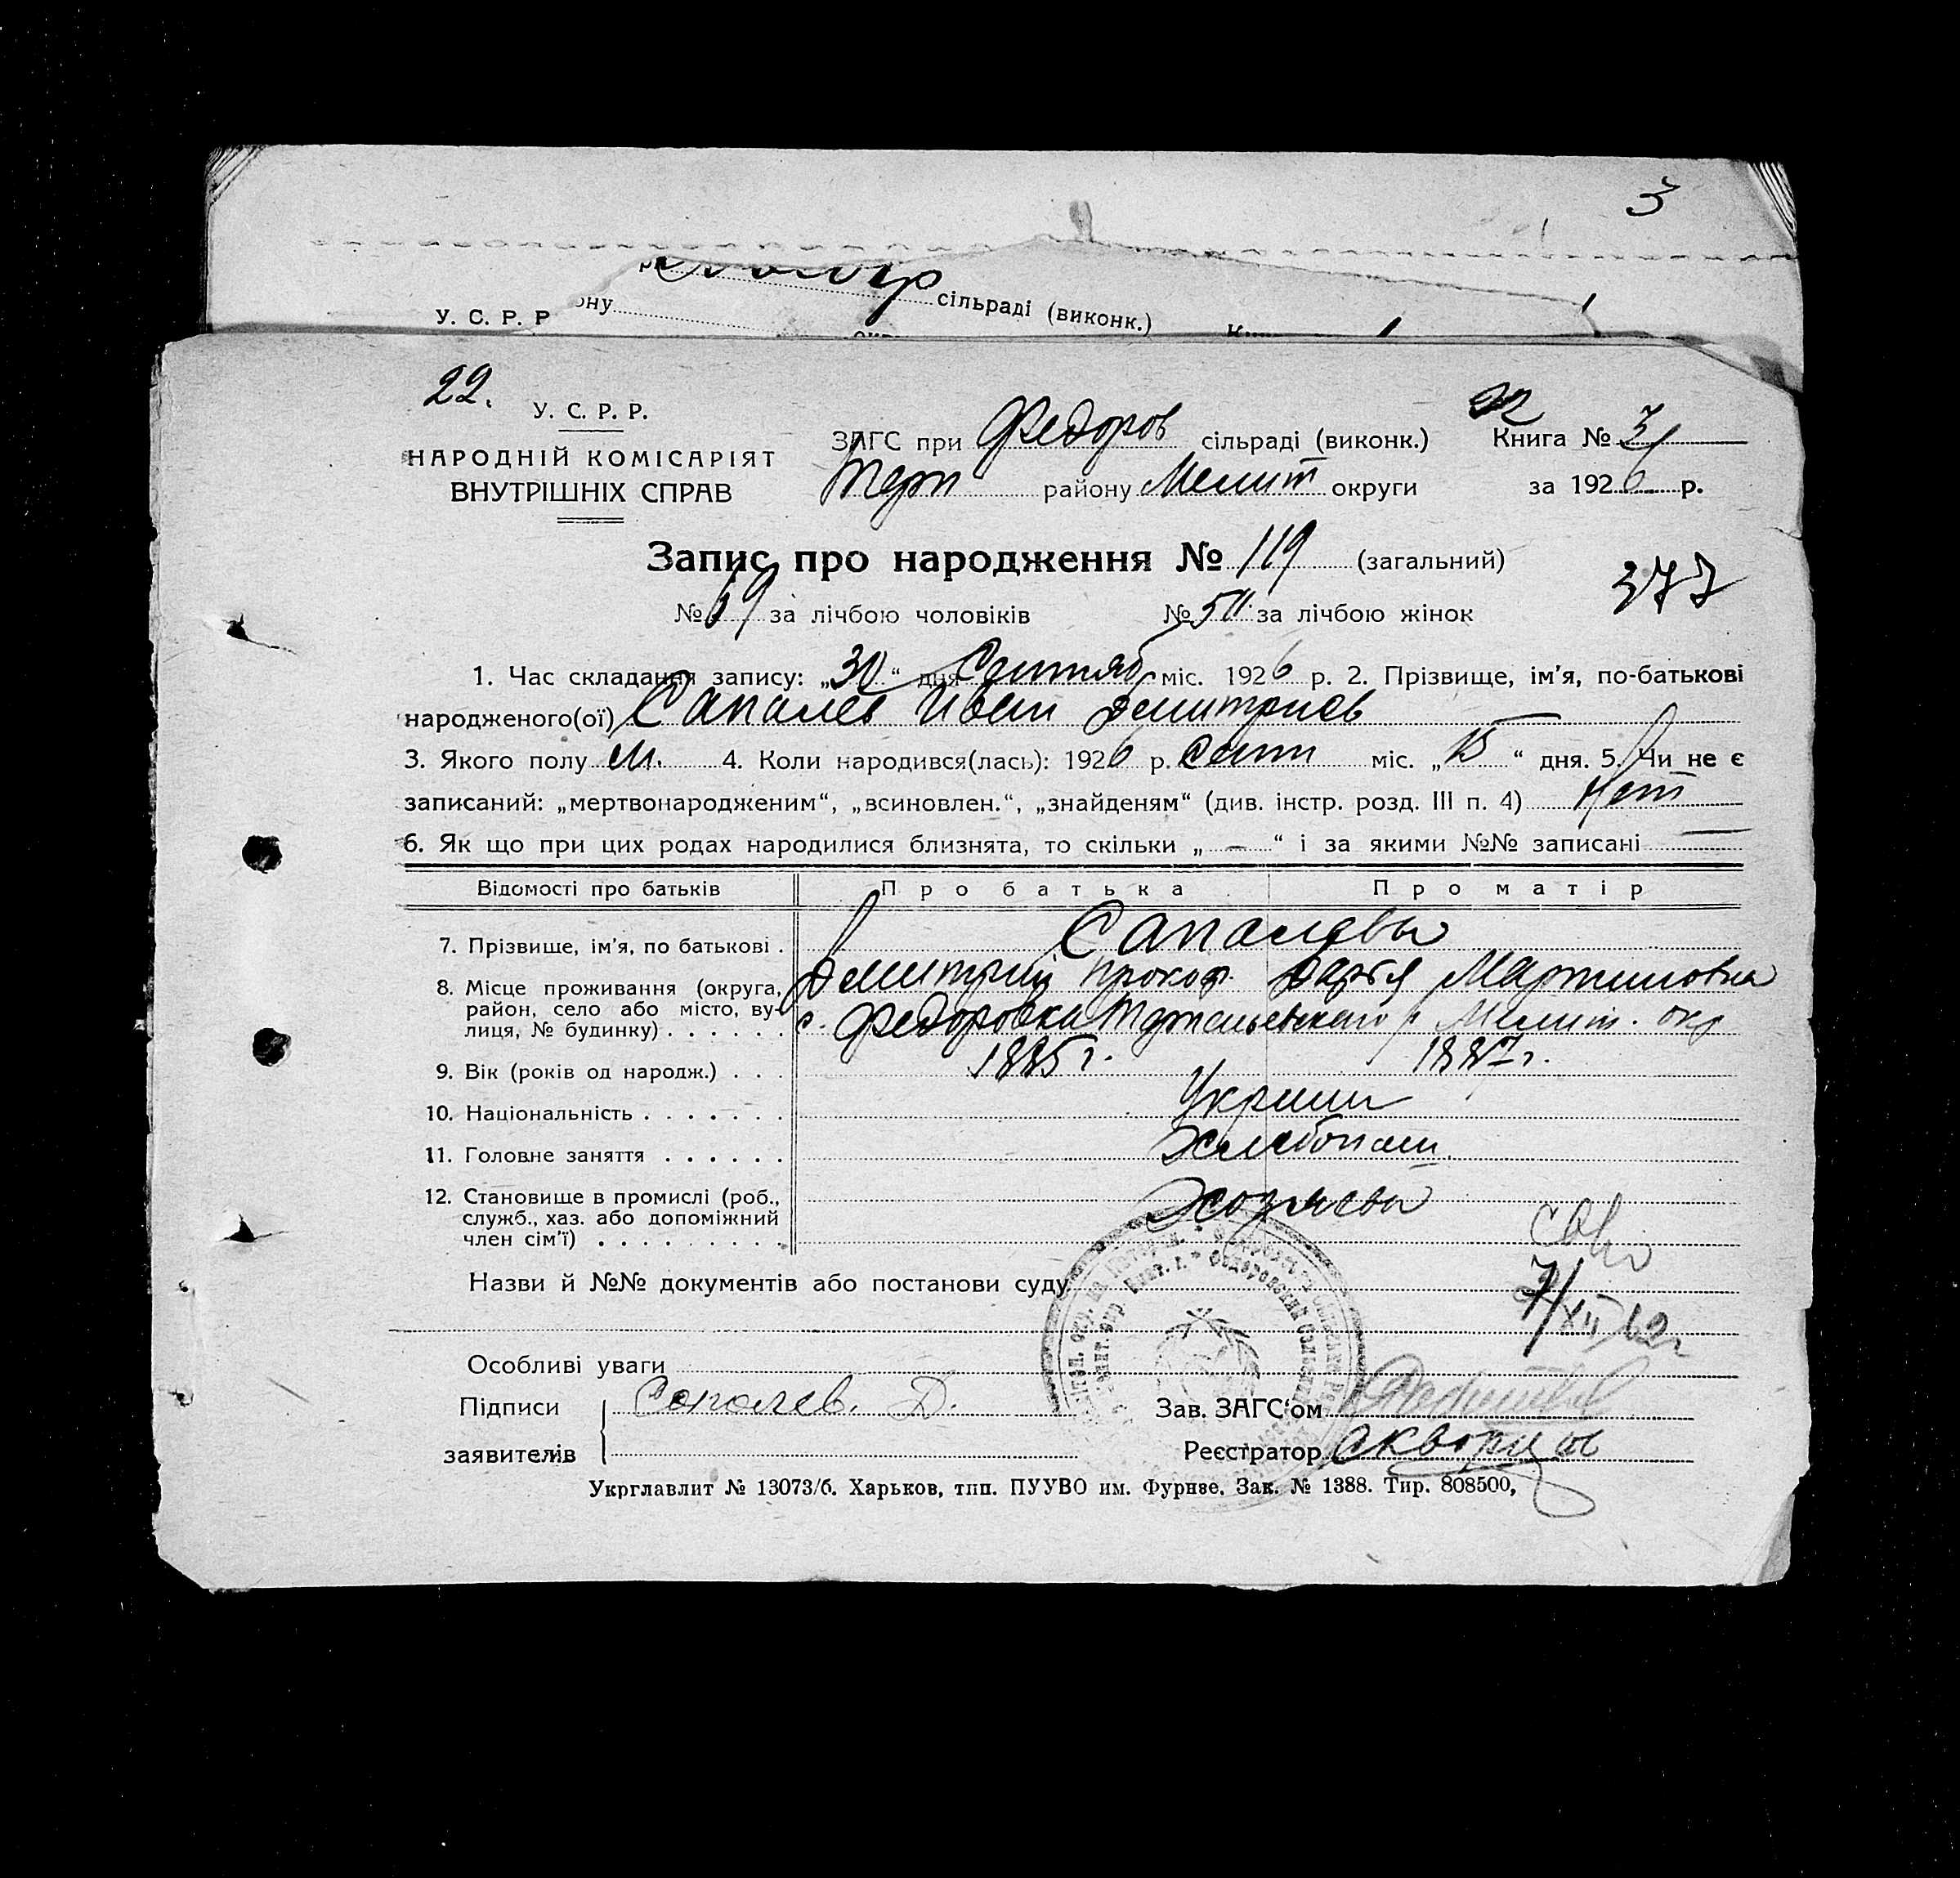 3
сільраді (виконк.)
У. С. Р. Р
22.
У. С. Р. Р.
НАРОДНІЙ КОМІСАРІЯТ
ВНУТРІШНІХ СПРАВ
ЗАГС при Федоров сільраді (виконк.)
району Мелит округи
22
Книга № 3
за 1926 р.
Запис про народження № 119 (загальний)
№ 69 за лічбою чоловіків № 50 за лічбою жінок
377
1. Час складання запису: „30“ дня Сентяб міс. 1926 р. 2. Прізвище, ім'я, по-батькові
народженого(ої) Сапалев Иван Дмитриев
3. Якого полу м. 4. Коли народився(лась): 1926 р. Сент міс. „15“ дня. 5. Чи не є
записаний: „мертвонародженим“, „всиновлен.“, „знайденям“ (див. інстр. розд. III п. 4) Нет
6. Як що при цих родах народилися близнята, то скільки „ — “ і за якими №№ записані —
Відомості про батьків Про батька Про матір
7. Прізвище, ім'я, по батькові . Сапалевы
Дмитрий Прокоф. Дарья Мартиновна
8. Місце проживання (округа, район, село або місто, вулиця, № будинку) . . . . . . с. Федоровка р. Мелит. окр
9. Вік (років од народж.) . . . 1885 г. 1887 г.
10. Національність . . . . . . . Украин
11. Головне заняття . . . . . . Хлебопаш.
12. Становище в промислі (роб., служб., хаз. або допоміжний член сім'ї) . . . . . . . . . Хозяева
Назви й №№ документів або постанови суду
7/XII 62 г
Особливі уваги
Підписи заявителів Сопалев. Д.
Зав. ЗАГС'ом
Реєстратор Скворцов
Укрглавлит № 13073/б. Харьков, тип. ПУУВО им. Фрунзе. Зак. № 1388. Тир. 808500,